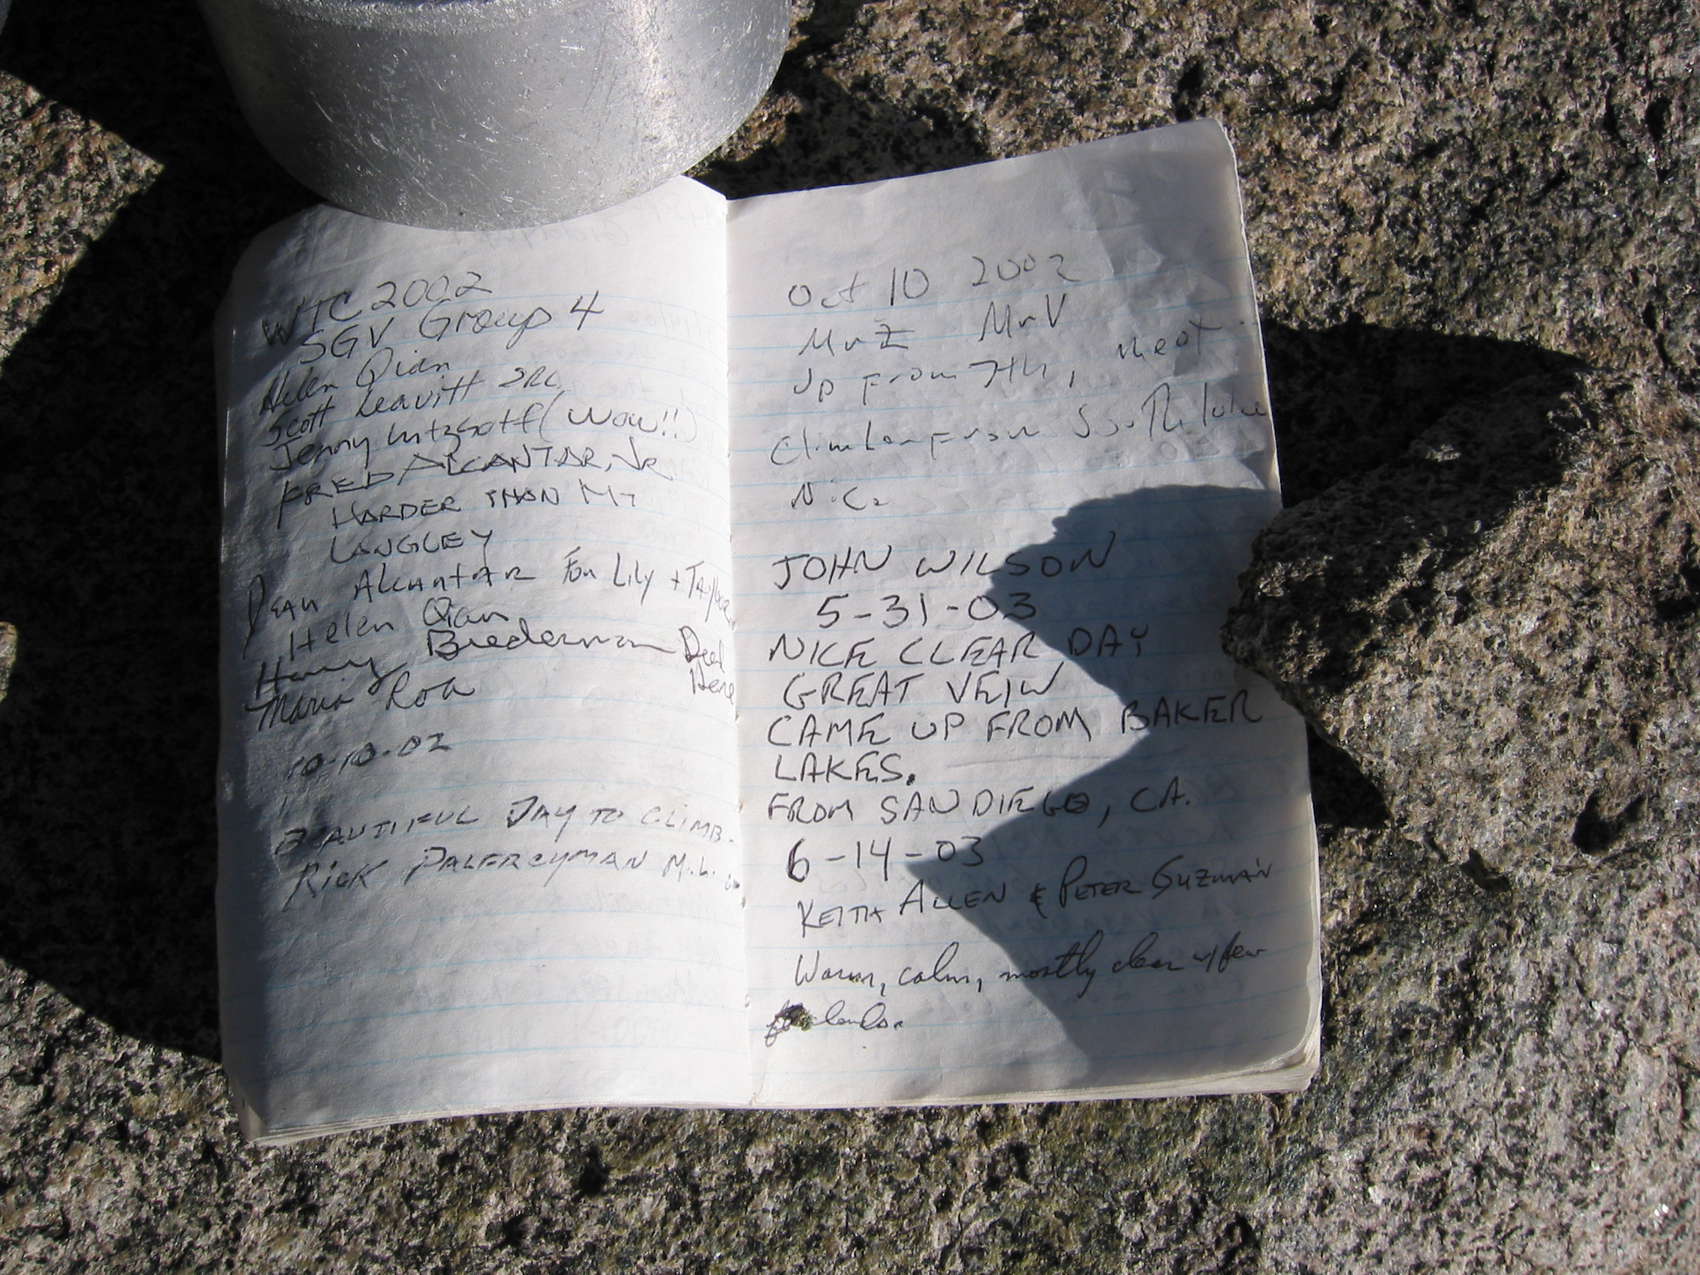 WTC 2002
SGV Group 4
Helen Qian
Scott Leavitt SRC
Jenny (WOW!!)
FRED ALCANTAR, JR
HARDER THAN MT
LANGLEY
Dean Alcantar For Lily + Taylor
Helen Qian
Harry Biederman
Maria Roa
10-10-02
BEAUTIFUL DAY TO CLIMB.
RICK PALFREYMAN
Oct 10 2002
Up from 7th,
Climber from South lake
Nice
JOHN WILSON
5-31-03
NICE CLEAR DAY
GREAT VEIW
CAME UP FROM BAKER
LAKES.
FROM SAN DIEGO, CA.
6-14-03
KEITH ALLEN & PETER GUZMAN
Warm, calm, mostly clear w/few
clouds.